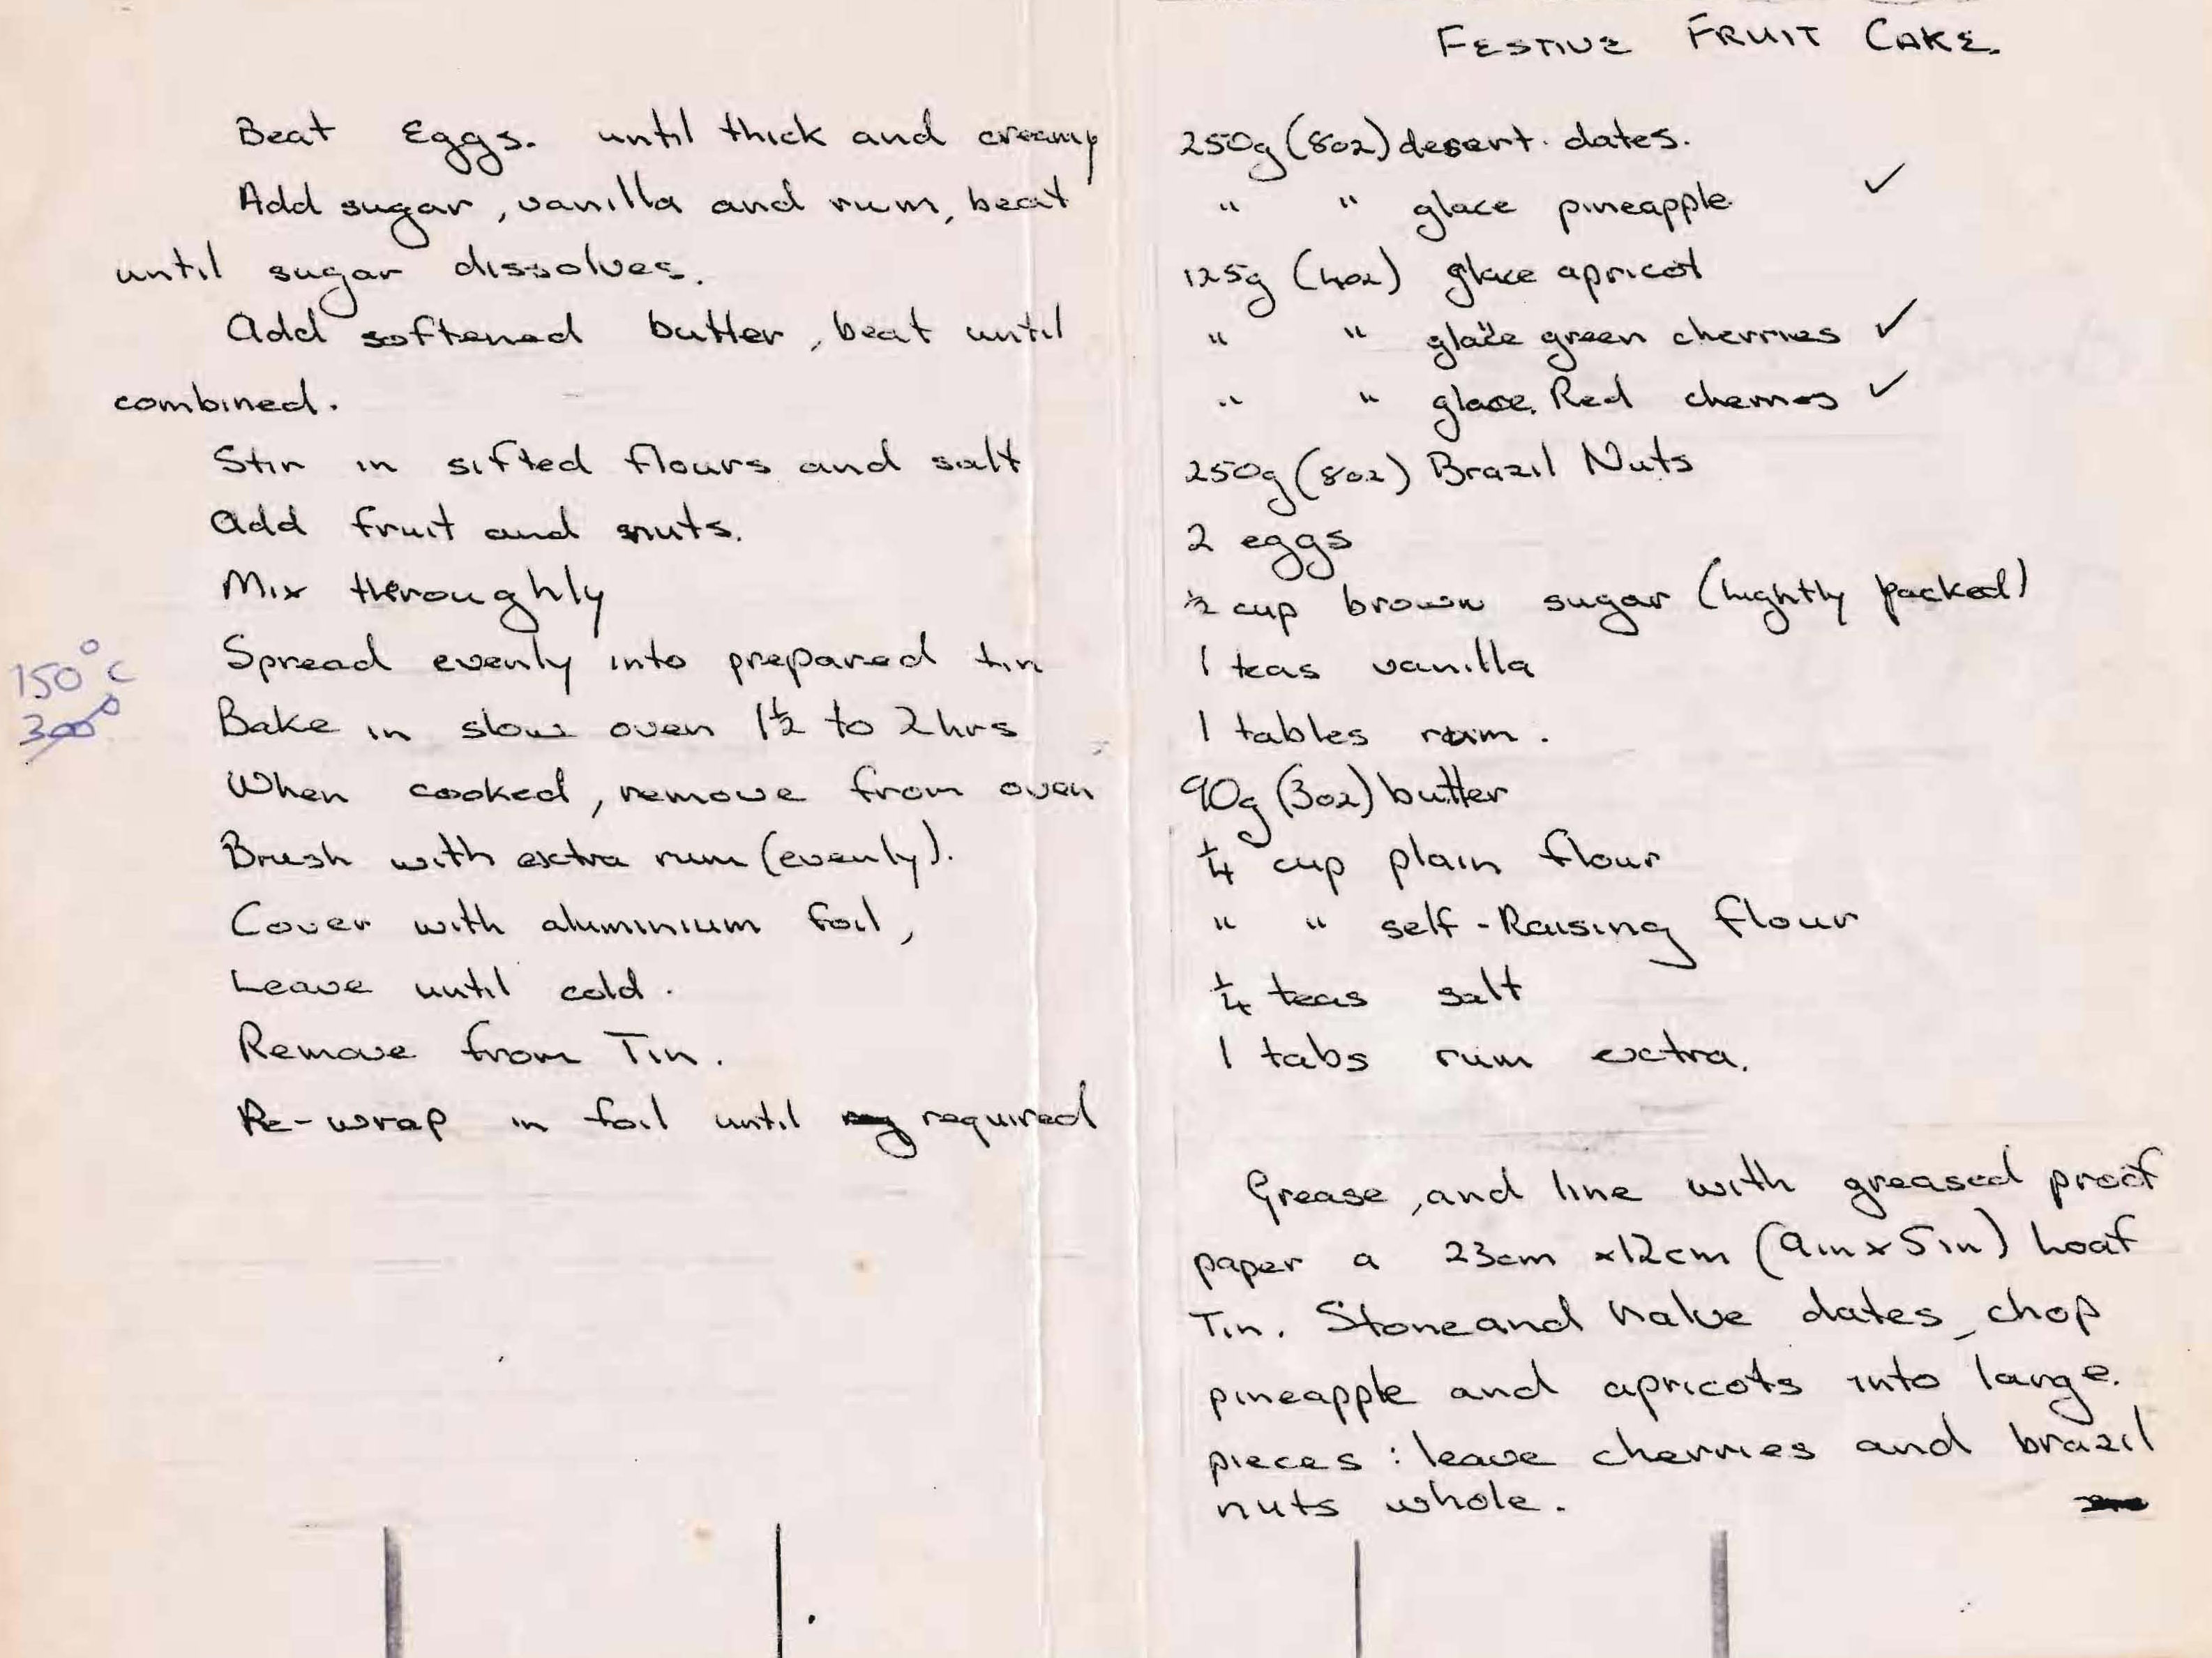 FESTIVE FRUIT CAKE.
250g (8oz) desert. dates.
" " glace pineapple ✓
125g (4oz) glace apricot
" " glace green cherries ✓
" " glace. Red cherries ✓
250g (8oz) Brazil Nuts
2 eggs
½ cup brown sugar (lightly packed)
1 teas vanilla
1 tables rum.
90g (3oz) butter
¼ cup plain flour
" " self-Raising flour
¼ teas salt
1 tabs rum extra.
Grease, and line with greased proof
paper a 23cm x12cm (9in x 5in) loaf
Tin. Stone and halve dates, chop
pineapple and apricots into large.
pieces : leave cherries and brazil
nuts whole.
Beat Eggs. until thick and creamy
Add sugar, vanilla and rum, beat
until sugar dissolves.
Add softened butter, beat until
combined.
Stir in sifted flours and salt
Add fruit and nuts.
Mix thoroughly
Spread evenly into prepared tin
150°C
300°
Bake in slow oven 1½ to 2hrs
When cooked, remove from oven
Brush with extra rum (evenly).
Cover with aluminium foil,
Leave until cold.
Remove from Tin.
Re-wrap in foil until required